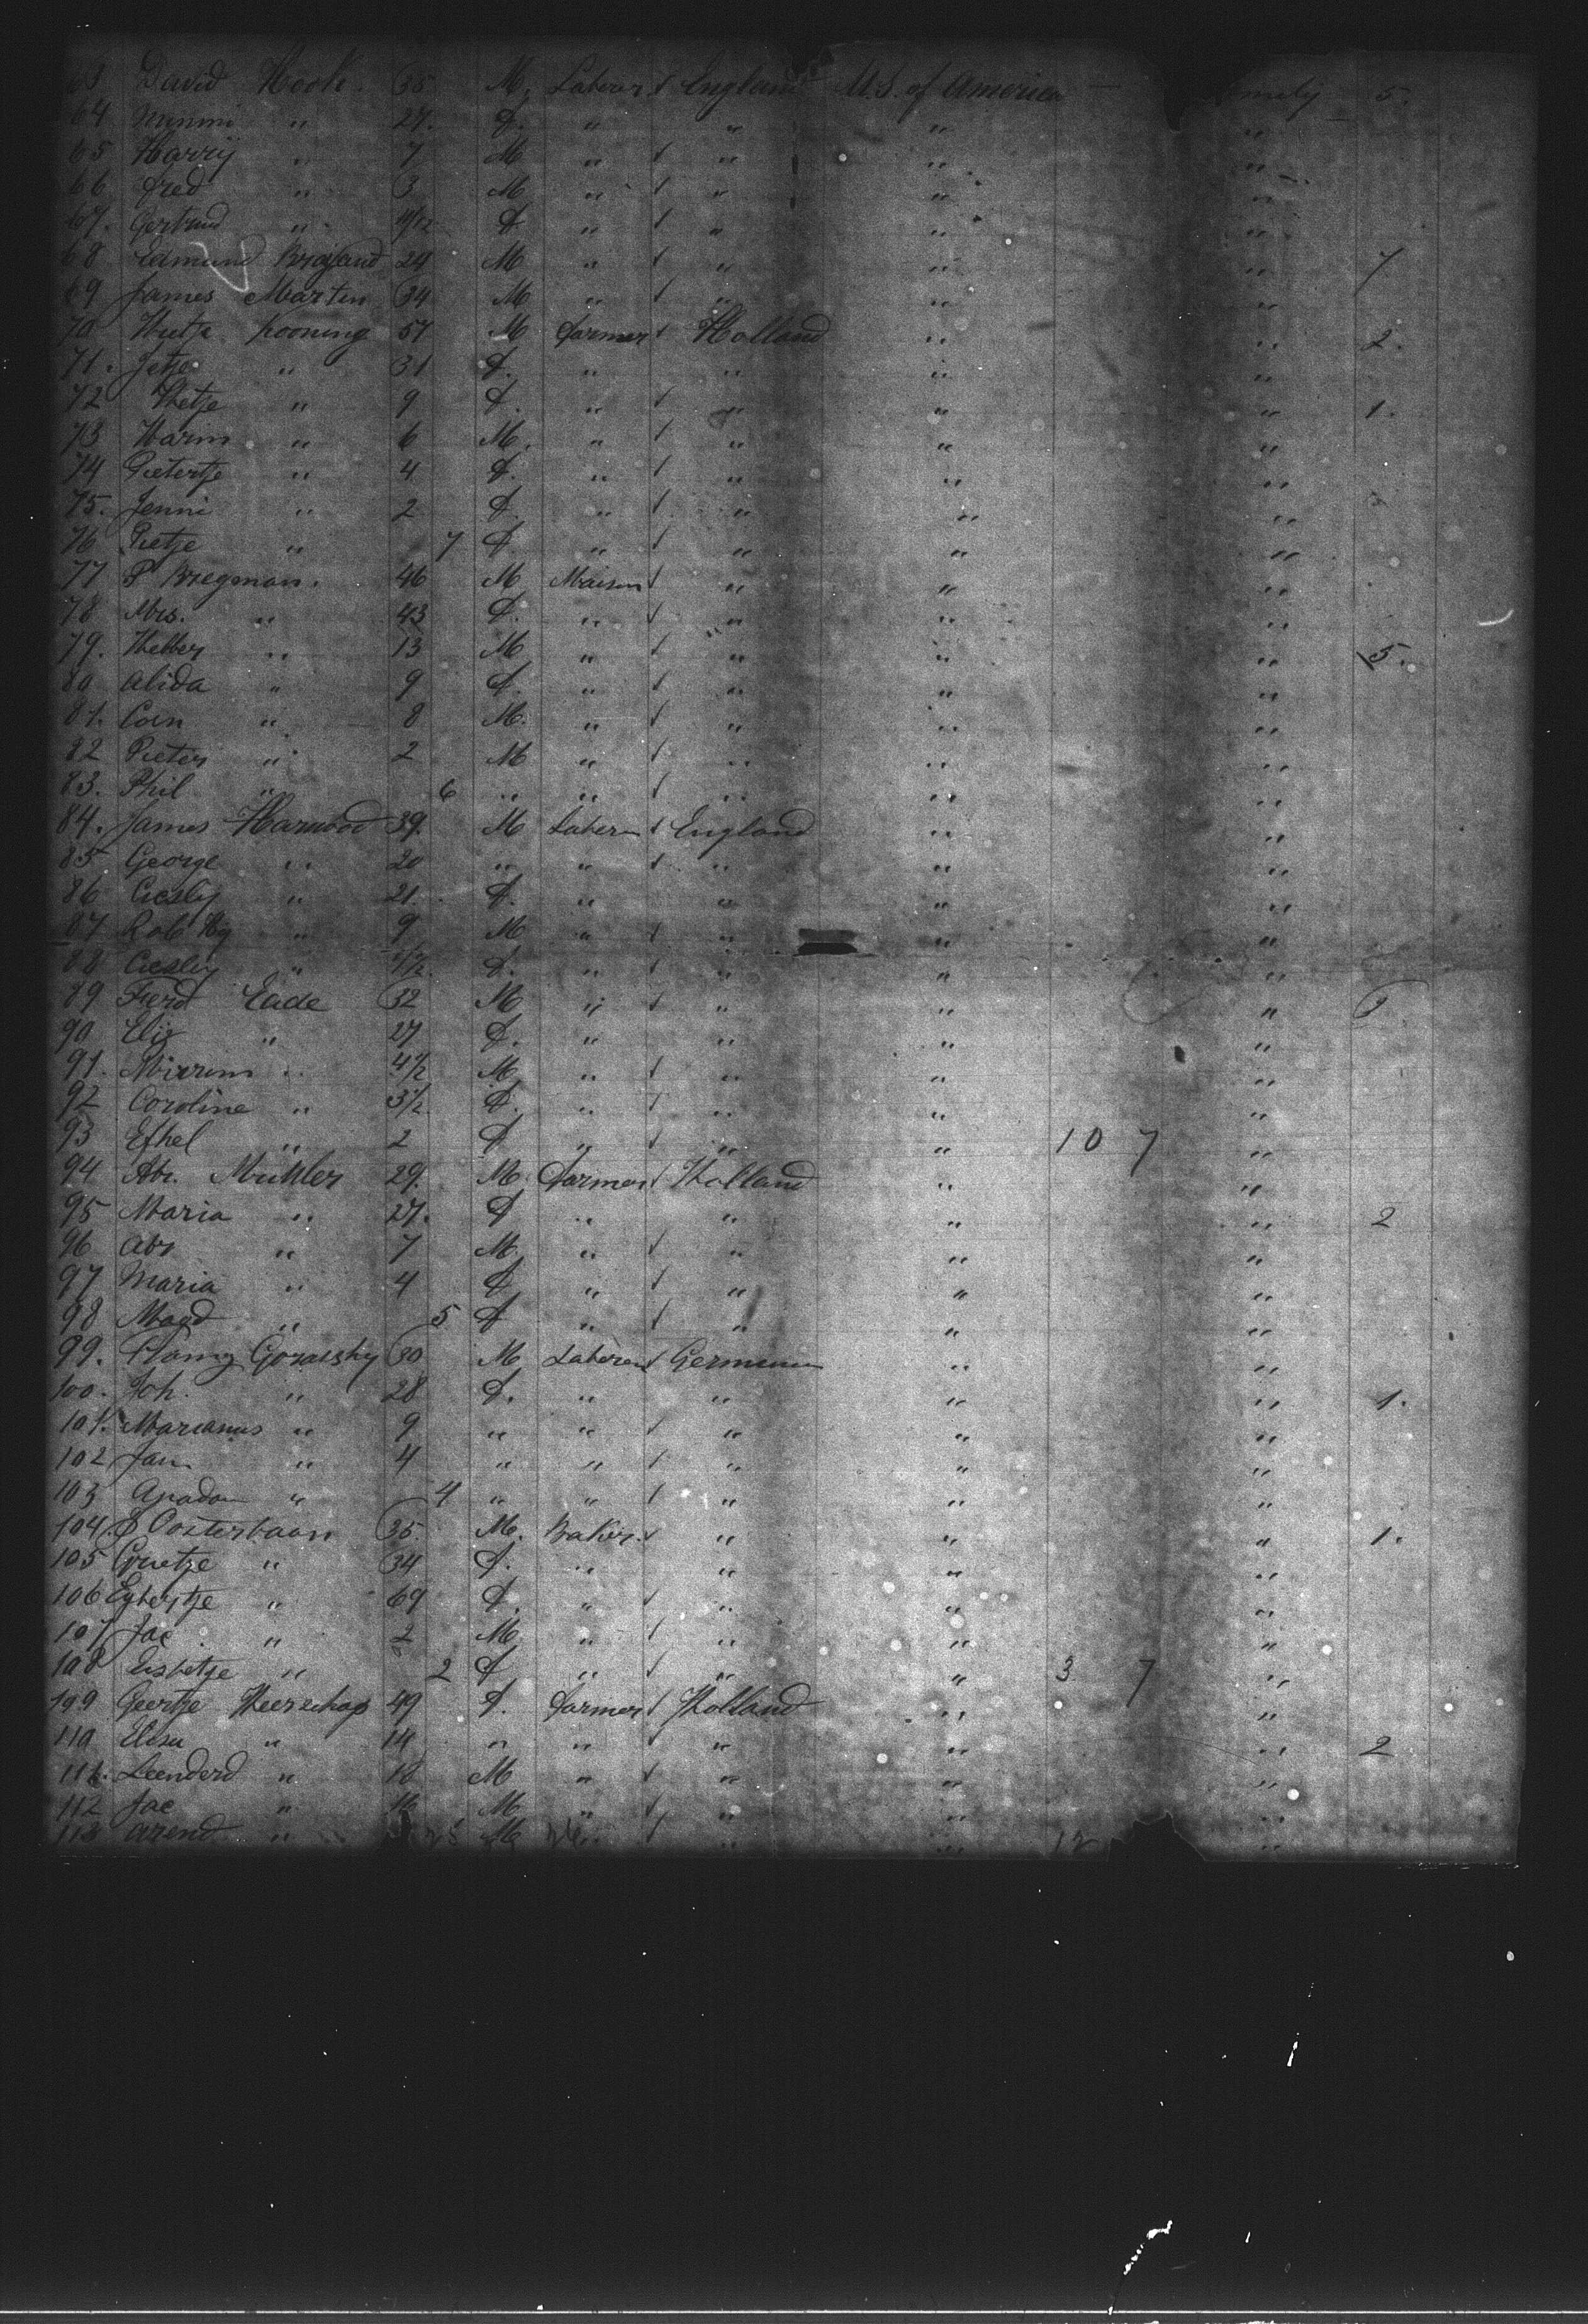 63 David Hook. 35 M. Laborer England U.S. of America 5.
64 Minnie " 27. F. " " " "
65 Harry " 7 M " " " "
66 Fred " 3 M " " " "
67. Gertrud " 11/12 F " " " "
68 Edmund 24 M " " " " 7
69 James Martin 34 M " " " "
70 Kooning 57 M Farmer Holland " " 2.
71. Jetje " 31 F. " " " "
72 Hetje " 9 F. " " " " 1.
73 Harm " 6 M. " " " "
74 Pietertje " 4 F. " " " "
75. Jenni " 2 F. " " " "
76 Pietje " 7 F. " " " "
77 P Bregman. 46 M Maison " " "
78 Mrs. " 43 F. " " " "
79. " 13 M " " " " 5.
80 Alida " 9 F. " " " "
81. Corn " 8 M. " " " "
82 Pieter " 2 M " " " "
83. Phil " 6 " " " " "
84. James Harwood 39. M Laborer England " "
85 George " 20 " " " " "
86 Ciesly " 21. F. " " " "
87 " 9 M " " " "
88 Ciesly " F. " " " "
89 Ferd Eade 32 M " " " "
90 Eliz " 27 F. " " " "
91. " 4 1/2 M " " " "
92 Coroline " 3 1/2 F. " " " "
93 Ethel " 2 F " " " 10 7 "
94 Abr. Mühler 29. M Farmer Holland " "
95 Maria " 27. F " " " " 2
96 Abr " 7 M " " " "
97 Maria " 4 F " " " "
98 Magd " 5 F " " " "
99. 30 M Laborer German " "
100. Joh. " 28 F. " " " " 1.
101. Marianus " 9 " " " " "
102 Jan " 4 " " " " "
103 " 4 " " " " "
104 Oosterbaan 35. M. Baker " " " 1.
105 Grietje " 34 F. " " " "
106 Egbertje " 69 F. " " " "
107 Jac. " 2 M " " " "
108 Eisbetje " 2 F " " " 3 7 "
109 Geertje Heerschap 49 F. Farmer Holland " "
110 Elisa " 14 " " " " " 2
111. Leenderd " 18 M " " " "
112 Jac " 16 M " " " "
113 Arend " M " " 12 "